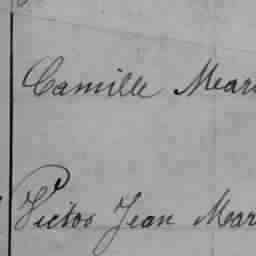 Camille Mari
Victor Jean Mar